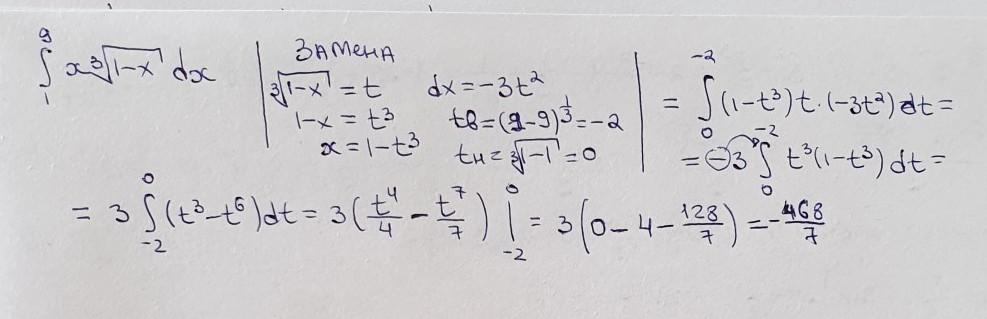 ∫₁⁹ x ∛(1-x) dx | ЗАМЕНА
∛(1-x) = t dx = -3t²
1-x = t³ tв = (9-9)^(1/3) = -2
x = 1-t³ tн = ∛(1-1) = 0
| = ∫₀⁻² (1-t³) t · (-3t²) dt =
= -3 ∫₀⁻² t³(1-t³) dt =
= 3 ∫₋₂⁰ (t³-t⁶) dt = 3 (t⁴/4 - t⁷/7) |₋₂⁰ = 3 (0 - 4 - 128/7) = -468/7